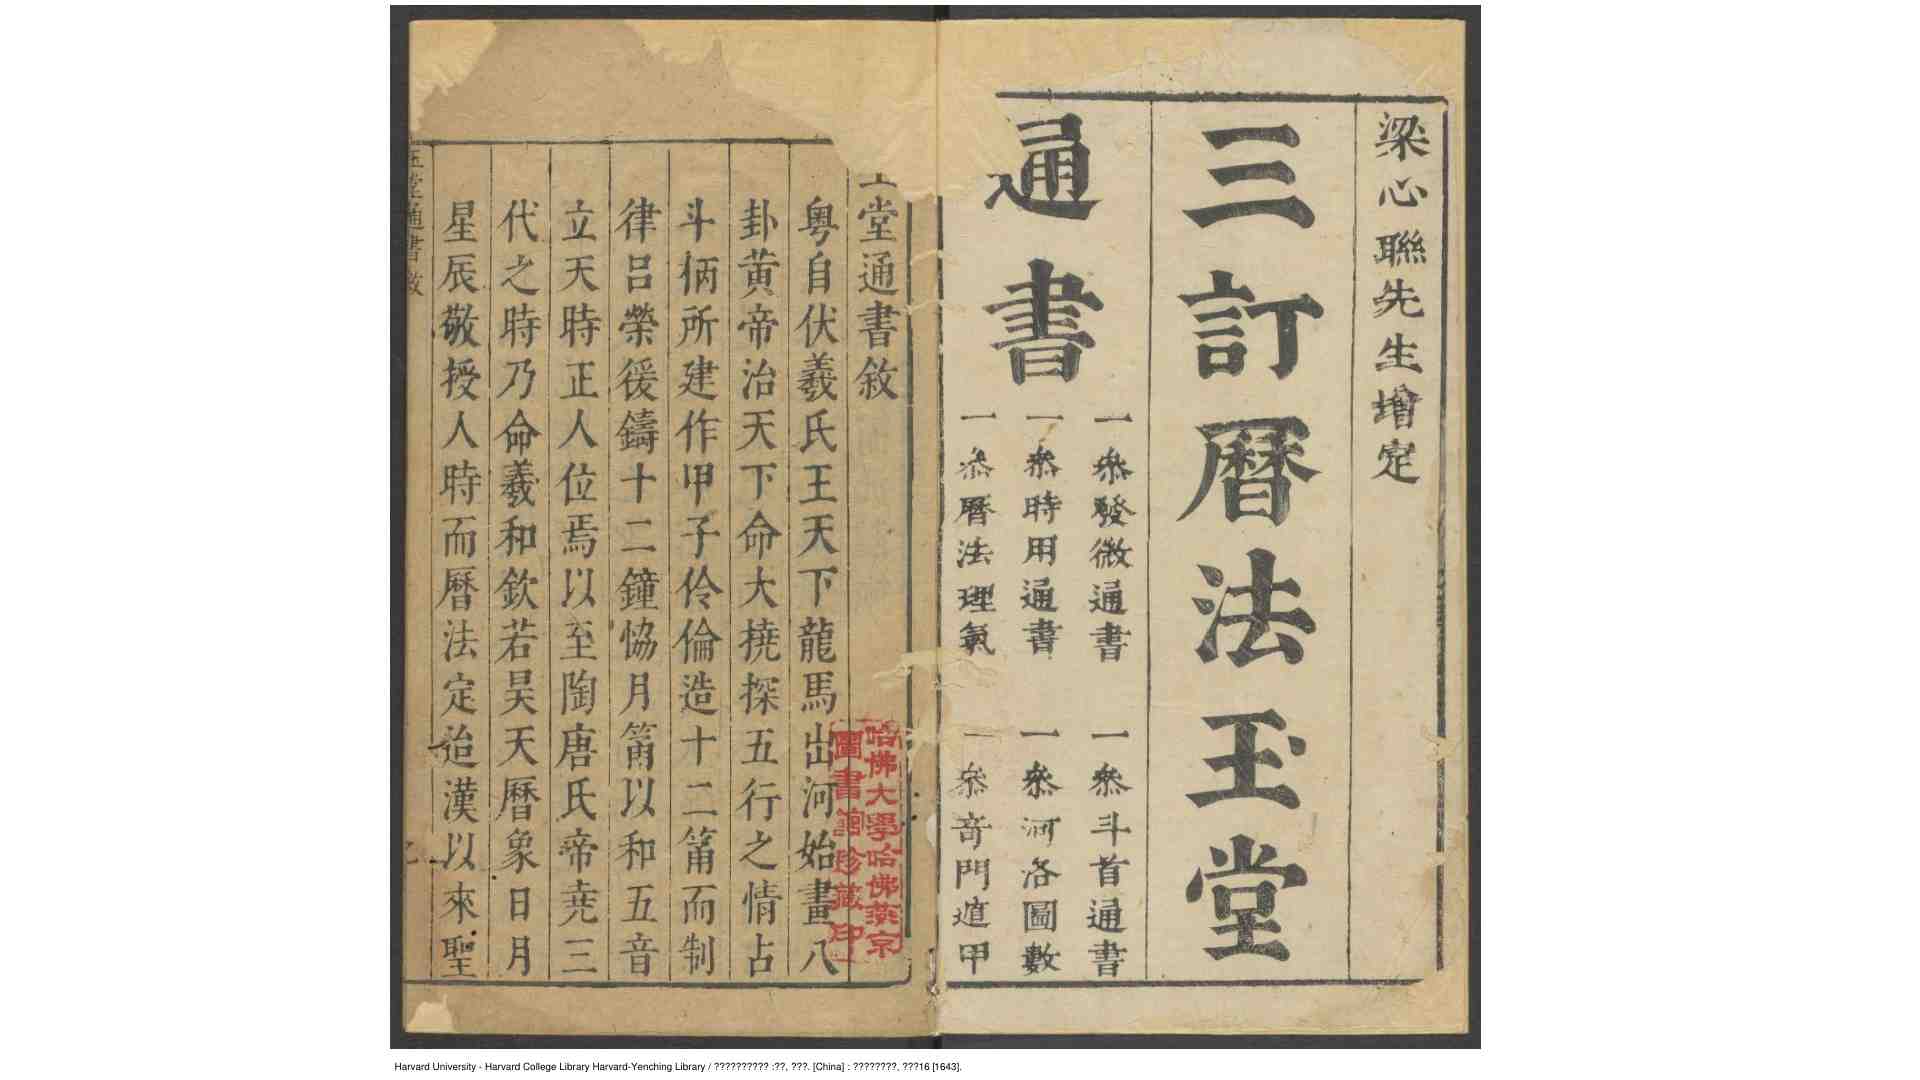 梁心聯先生增定
三訂曆法玉堂
通書
一叅發微通書
一叅斗首通書
一叅時用通書
一叅河洛圖數
一叅曆法理氣
一叅竒門遁甲
堂通書敘
粤自伏羲氏王天下龍馬出河始畫八
卦黄帝治天下命大撓探五行之情占
斗柄所建作甲子伶倫造十二筩而制
律吕榮猨鑄十二鐘恊月筩以和五音
立天時正人位焉以至陶唐氏帝尭三
代之時乃命羲和欽若昊天曆象日月
星辰敬授人時而曆法定迨漢以來聖
堂通書敘
哈佛大學哈佛燕京
圖書館珍藏印
Harvard University - Harvard College Library Harvard-Yenching Library / ?????????? :??, ???. [China] : ????????, ???16 [1643].